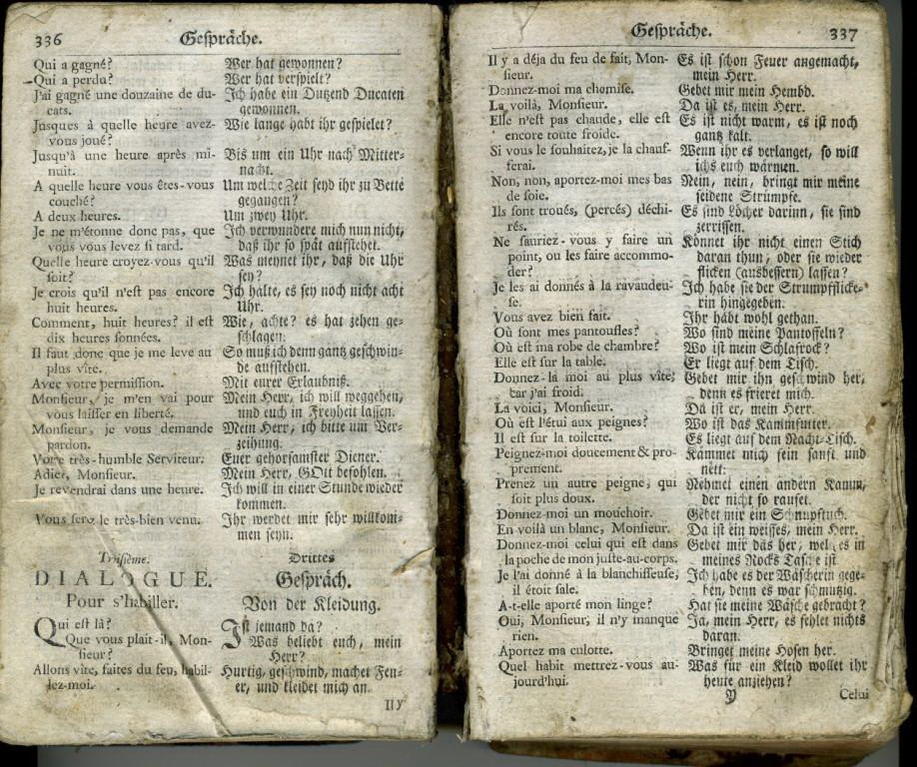 336 Gespräche.
Qui a gagné?
Qui a perdu?
J'ai gagné une douzaine de du-
cats.
Jusques à quelle heure avez-
vous joué?
Jusqu'à une heure après mi-
nuit.
A quelle heure vous êtes-vous
couché?
A deux heures.
Je ne m'étonne donc pas, que
vous vous levez si tard.
Quelle heure croyez-vous qu'il
soit?
Je crois qu'il n'est pas encore
huit heures.
Comment, huit heures? il est
dix heures sonnées.
Il faut donc que je me leve au
plus vîte.
Avec votre permission.
Monsieur, je m'en vai pour
vous laisser en liberté.
Monsieur, je vous demande
pardon.
Votre très-humble Serviteur.
Adieu, Monsieur.
Je revendrai dans une heure.
Vous serez le très-bien venu.
Troisième.
DIALOGUE.
Pour s'habiller.
Qui est là?
Que vous plaît-il, Mon-
sieur?
Allons vîte, faites du feu, habil-
lez-moi.
Wer hat gewonnen?
Wer hat verspielt?
Ich habe ein Dutzend Ducaten
gewonnen.
Wie lange habt ihr gespielet?
Bis um ein Uhr nach Mitter-
nacht.
Um welche Zeit seyd ihr zu Bette
gegangen?
Um zwey Uhr.
Ich verwundere mich nun nicht,
daß ihr so spät aufstehet.
Was meynet ihr, daß die Uhr
sey?
Ich halte, es sey noch nicht acht
Uhr.
Wie, achte? es hat zehen ge-
schlagen.
So muß ich denn gantz geschwin-
de aufstehen.
Mit eurer Erlaubniß.
Mein Herr, ich will weggehen,
und euch in Freyheit lassen.
Mein Herr, ich bitte um Ver-
zeihung.
Euer gehorsamster Diener.
Mein Herr, GOtt befohlen.
Ich will in einer Stunde wieder
kommen.
Ihr werdet mir sehr willkom-
men seyn.
Drittes
Gespräch.
Von der Kleidung.
Ist jemand da?
Was beliebt euch, mein
Herr?
Hurtig, geschwind, machet Feu-
er, und kleidet mich an.
Gespräche. 337
Il y a déja du feu de fait, Mon-
sieur.
Donnez-moi ma chemise.
La voilà, Monsieur.
Elle n'est pas chaude, elle est
encore toute froide.
Si vous le souhaitez, je la chauf-
ferai.
Non, non, aportez-moi mes bas
de soie.
Ils sont troués, (percés) déchi-
rés.
Ne sauriez-vous y faire un
point, ou les faire accommo-
der?
Je les ai donnés à la ravaudeu-
se.
Vous avez bien fait.
Où sont mes pantoufles?
Où est ma robe de chambre?
Elle est sur la table.
Donnez-la moi au plus vîte;
car j'ai froid.
La voici, Monsieur.
Où est l'étui aux peignes?
Il est sur la toilette.
Peignez-moi doucement & pro-
prement.
Prenez un autre peigne, qui
soit plus doux.
Donnez-moi un mouchoir.
En voilà un blanc, Monsieur.
Donnez-moi celui qui est dans
la poche de mon juste-au-corps.
Je l'ai donné à la blanchisseuse,
il étoit sale.
A-t-elle aporté mon linge?
Oui, Monsieur, il n'y manque
rien.
Aportez ma culotte.
Quel habit mettrez-vous au-
jourd'hui.
Es ist schon Feuer angemacht,
mein Herr.
Gebet mir mein Hembd.
Da ist es, mein Herr.
Es ist nicht warm, es ist noch
gantz kalt.
Wenn ihr es verlanget, so will
ichs euch wärmen.
Nein, nein, bringt mir meine
seidene Strümpfe.
Es sind Löcher darinn, sie sind
zerrissen.
Könnet ihr nicht einen Stich
daran thun, oder sie wieder
flicken (ausbessern) lassen?
Ich habe sie der Strumpfflicke-
rin hingegeben.
Ihr habt wohl gethan.
Wo sind meine Pantoffeln?
Wo ist mein Schlafrock?
Er liegt auf dem Tisch.
Gebet mir ihn geschwind her,
denn es frieret mich.
Da ist er, mein Herr.
Wo ist das Kammfutter.
Es liegt auf dem Nacht-Tisch.
Kämmet mich fein sanft und
nett.
Nehmet einen andern Kamm,
der nicht so raufet.
Gebet mir ein Schnupftuch.
Da ist ein weisses, mein Herr.
Gebet mir das her, welches in
meines Rocks Tasche ist.
Ich habe es der Wäscherin gege-
ben, denn es war schmutzig.
Hat sie meine Wäsche gebracht?
Ja, mein Herr, es fehlet nichts
daran.
Bringet meine Hosen her.
Was für ein Kleid wollet ihr
heute anziehen?
Y Celui